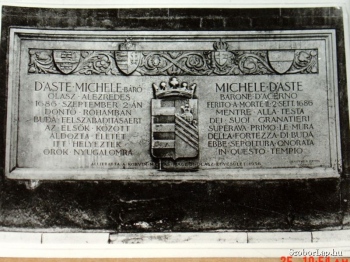 D'ASTE MICHELE BÁRÓ
OLASZ ALEZREDES
1686 SZEPTEMBER 2-ÁN
DÖNTŐ ROHAMBAN
BUDA FELSZABADÍTÁSÁÉRT
AZ ELSŐK KÖZÖTT
ÁLDOZTA ÉLETÉT
ITT HELYEZTÉK
ÖRÖK NYUGALOMRA
MICHELE D'ASTE
BARONE D'ACERNO
FERITO A MORTE IL 2 SETT 1686
MENTRE ALLA TESTA
DEI SUOI GRANATIERI
SUPERAVA PRIMO LE MURA
DELLA FORTEZZA DI BUDA
EBBE SEPOLTURA ONORATA
IN QUESTO TEMPIO
SzoborLap.hu